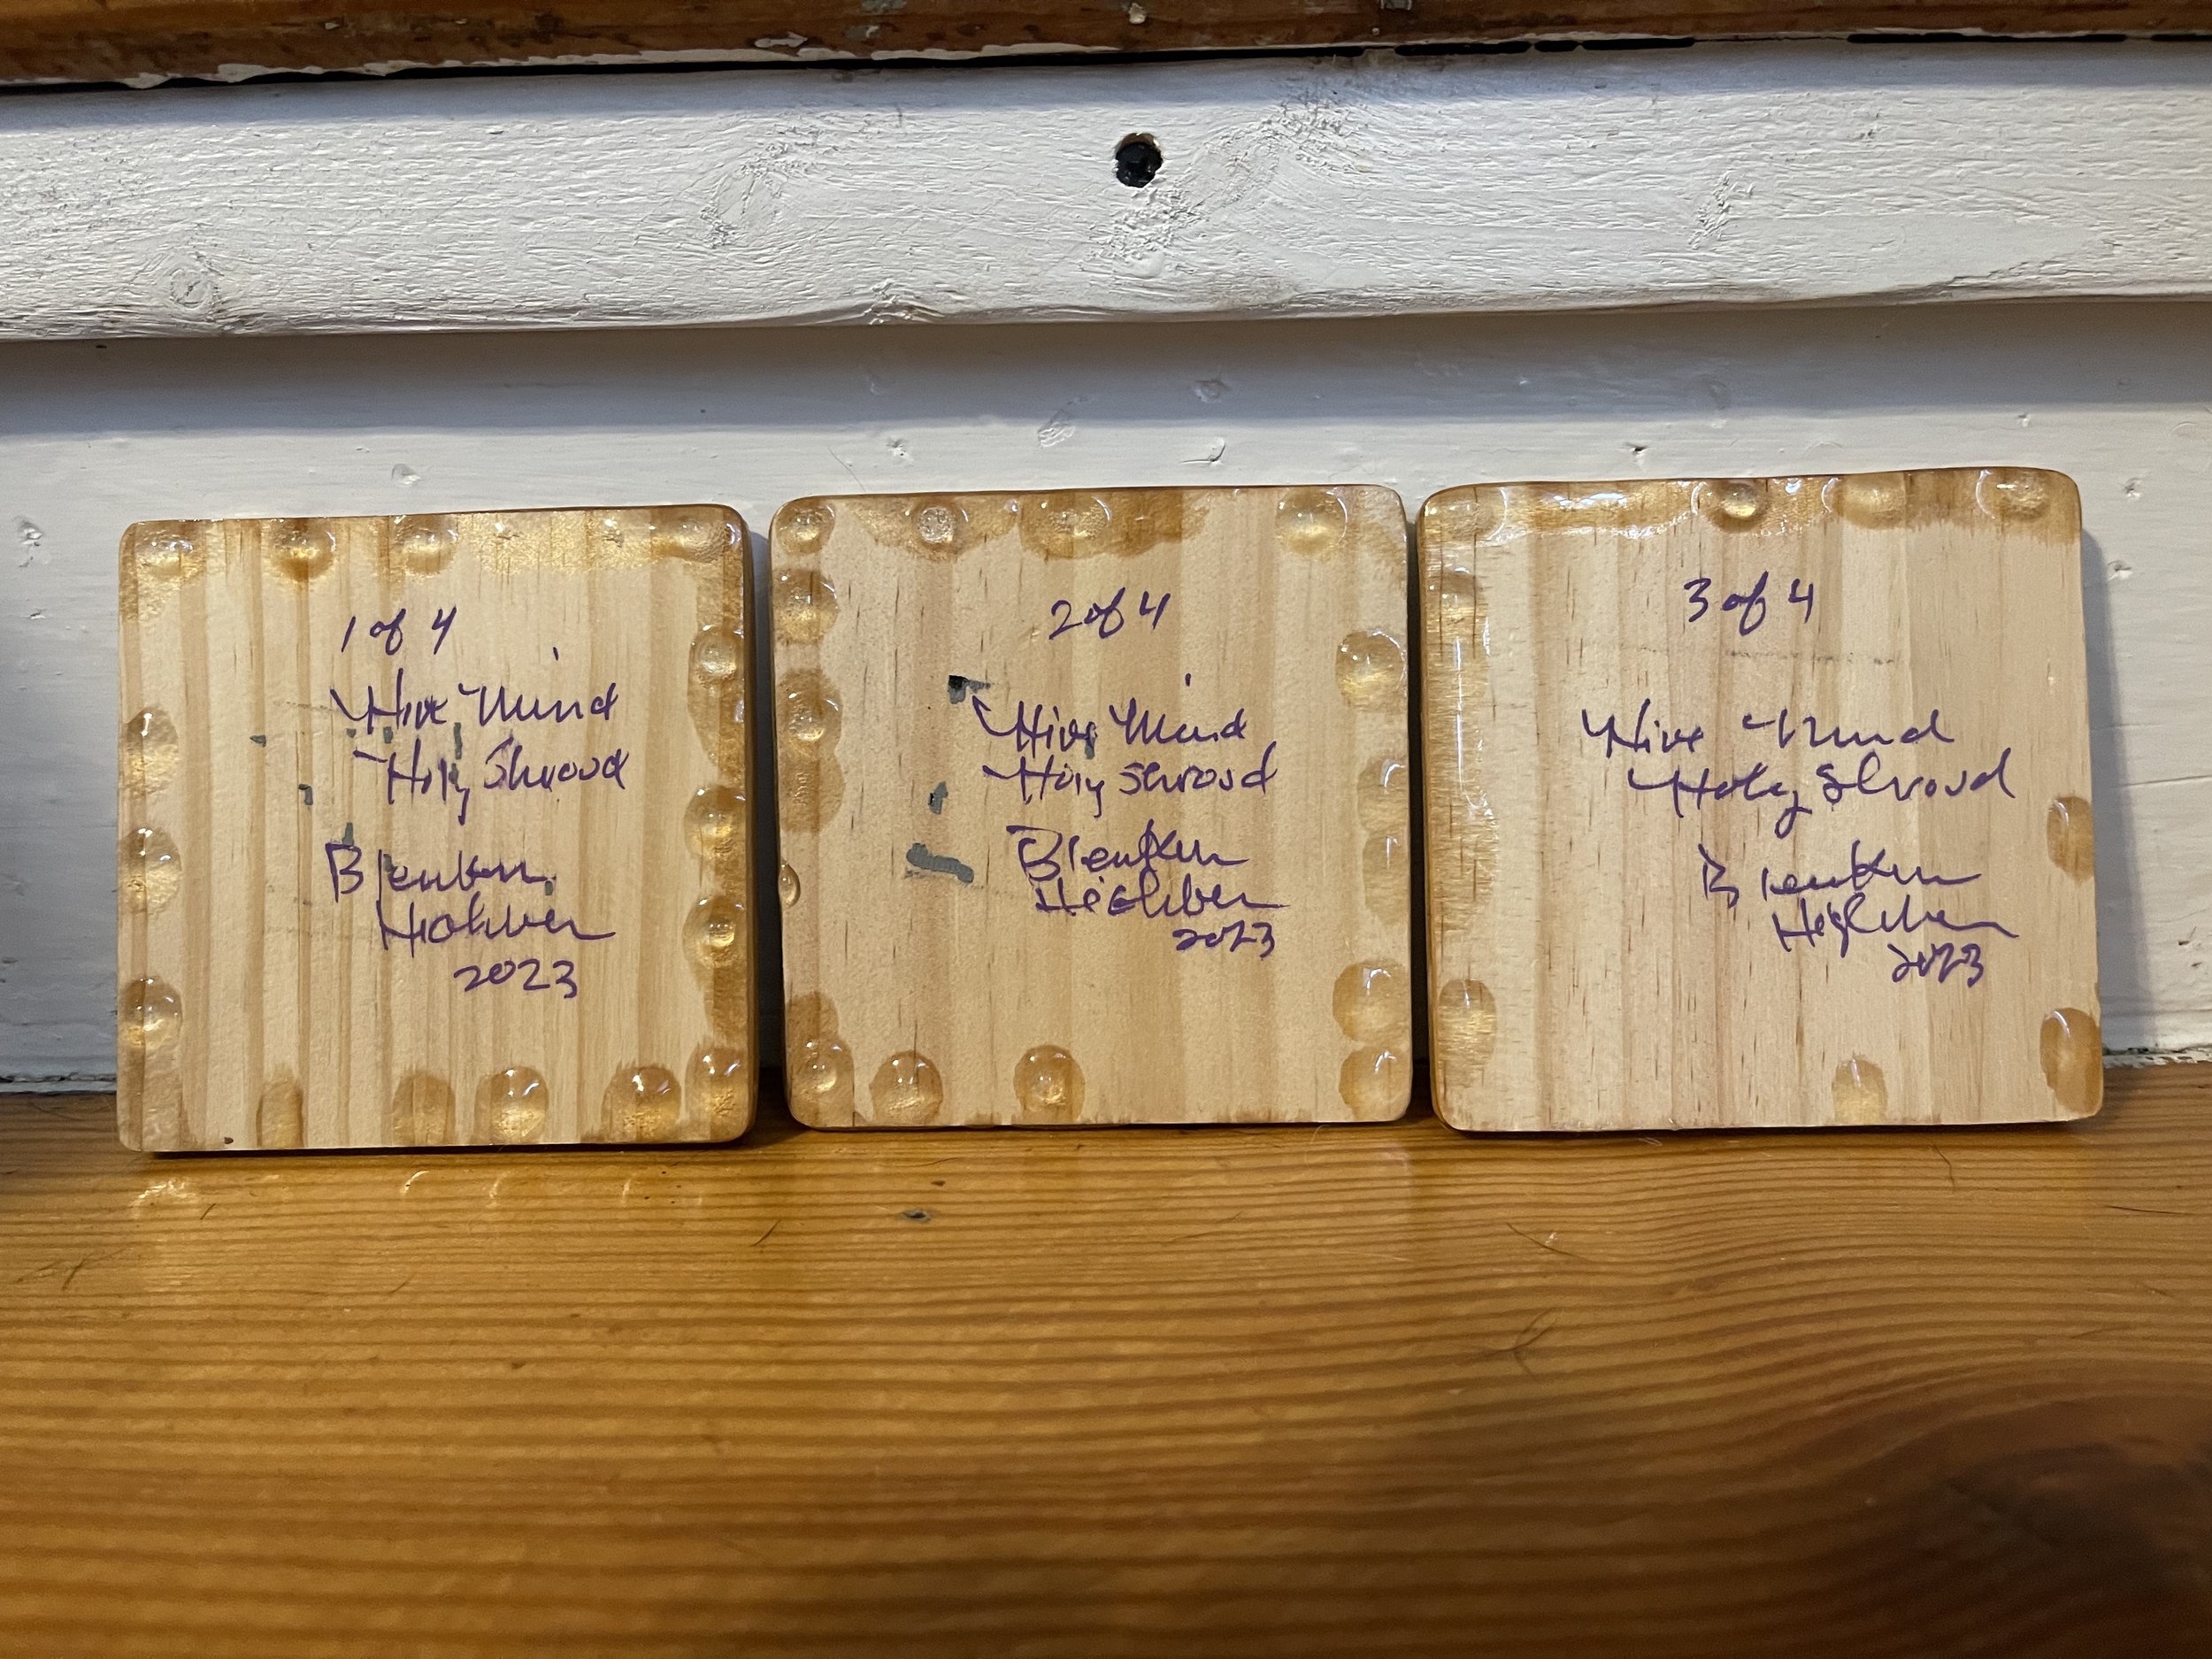 1 of 4
Hive Mind
Holy Shroud
2023
2 of 4
Hive Mind
Holy Shroud
2023
3 of 4
Hive Mind
Holy Shroud
2023